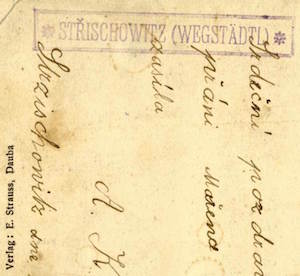 * STŘISCHOWITZ (WEGSTÄDTL) *
Srdečni pozdrav
přáni
zasíla
A. K
Strzischowitz dne
Verlag: E. Strauss, Dauba